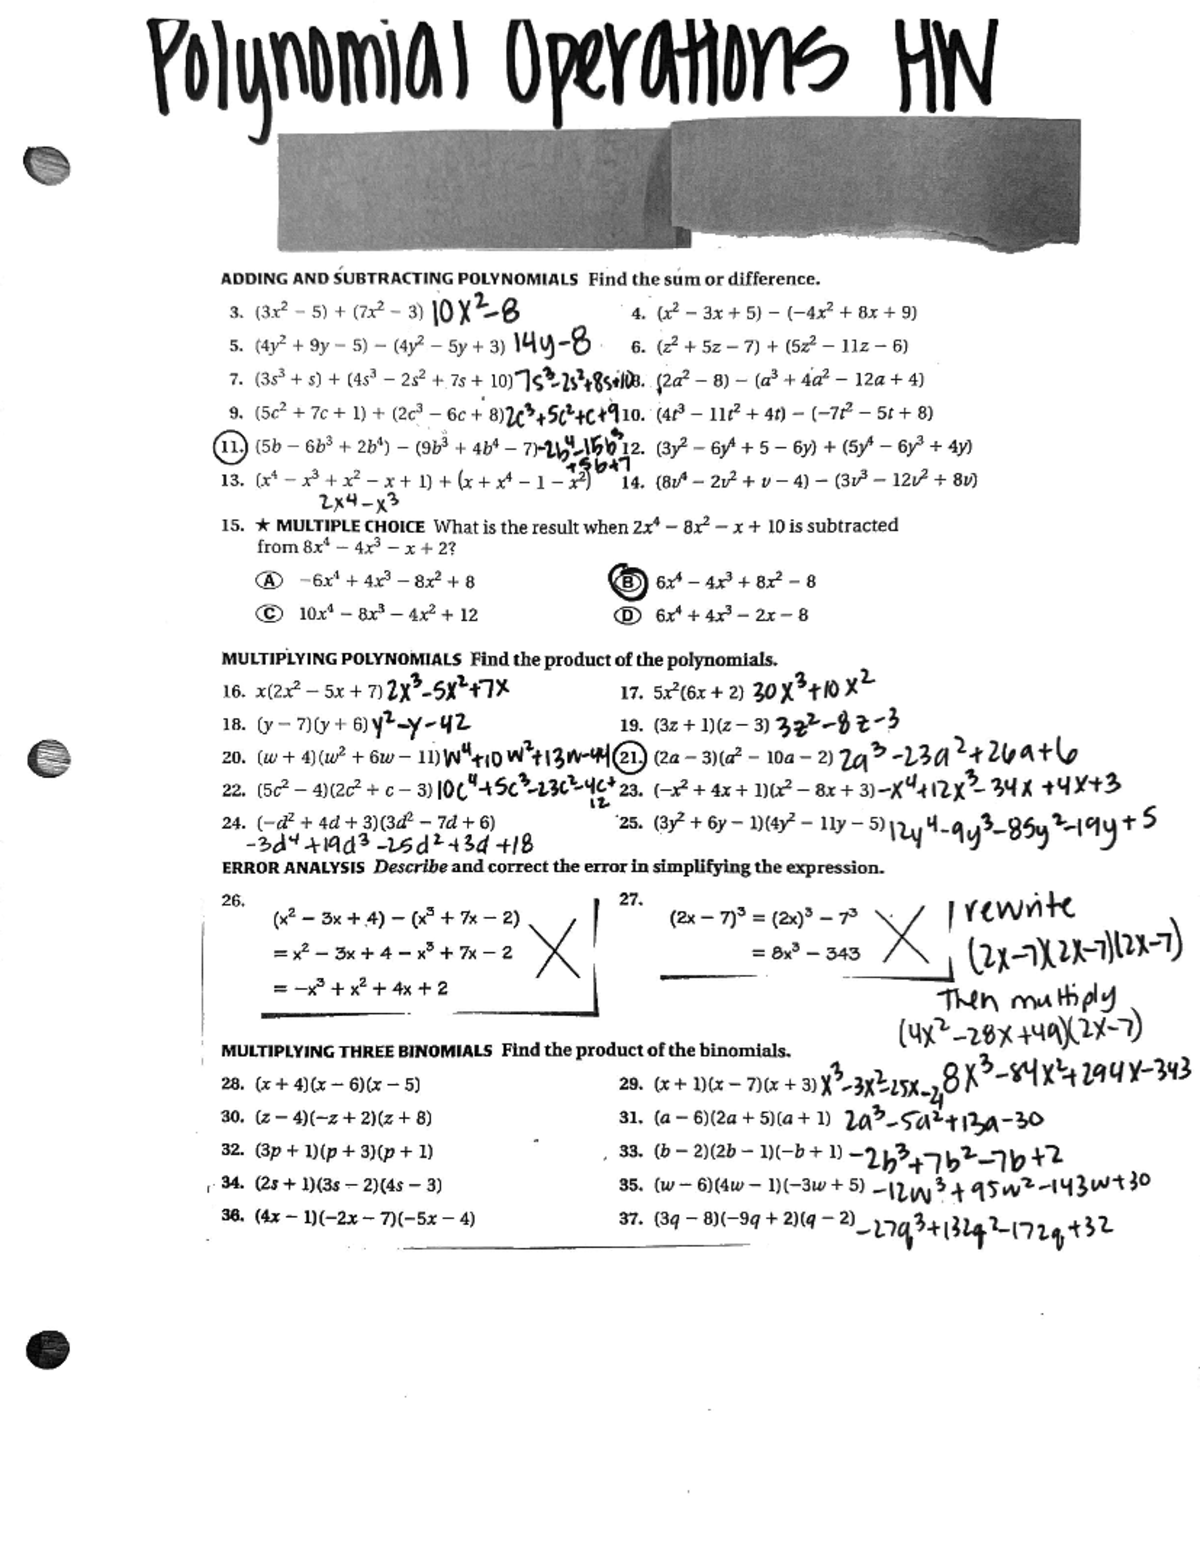 Polynomial Operations HW
ADDING AND SUBTRACTING POLYNOMIALS Find the sum or difference.
3. (3x² – 5) + (7x² – 3) 10x²-8
4. (x² – 3x + 5) – (–4x² + 8x + 9)
5. (4y² + 9y – 5) – (4y² – 5y + 3) 14y-8
6. (z² + 5z – 7) + (5z² – 11z – 6)
7. (3s³ + s) + (4s³ – 2s² + 7s + 10) 7s³-2s²+8s+10
8. (2a² – 8) – (a³ + 4a² – 12a + 4)
9. (5c² + 7c + 1) + (2c³ – 6c + 8) 2c³+5c²+c+9
10. (4t³ – 11t² + 4t) – (–7t² – 5t + 8)
11. (5b – 6b³ + 2b⁴) – (9b³ + 4b⁴ – 7) -2b⁴-15b³
+5b+7
12. (3y² – 6y⁴ + 5 – 6y) + (5y⁴ – 6y³ + 4y)
13. (x⁴ – x³ + x² – x + 1) + (x + x⁴ – 1 – x²)
2x4-x3
14. (8v⁴ – 2v² + v – 4) – (3v³ – 12v² + 8v)
15. ★ MULTIPLE CHOICE What is the result when 2x⁴ – 8x² – x + 10 is subtracted
from 8x⁴ – 4x³ – x + 2?
A –6x⁴ + 4x³ – 8x² + 8
B 6x⁴ – 4x³ + 8x² – 8
C 10x⁴ – 8x³ – 4x² + 12
D 6x⁴ + 4x³ – 2x – 8
MULTIPLYING POLYNOMIALS Find the product of the polynomials.
16. x(2x² – 5x + 7) 2x³-5x²+7x
17. 5x²(6x + 2) 30x³+10x²
18. (y – 7)(y + 6) y²-y-42
19. (3z + 1)(z – 3) 3z²-8z-3
20. (w + 4)(w² + 6w – 11) w⁴+10w²+13w-44
21. (2a – 3)(a² – 10a – 2) 2a³-23a²+26a+6
22. (5c² – 4)(2c² + c – 3) 10c⁴+5c³-23c²-4c+
12
23. (–x² + 4x + 1)(x² – 8x + 3) -x⁴+12x³-34x+4x+3
24. (–d² + 4d + 3)(3d² – 7d + 6)
-3d⁴+19d³-25d²+3d+18
25. (3y² + 6y – 1)(4y² – 11y – 5) 12y⁴-9y³-85y²-19y+5
ERROR ANALYSIS Describe and correct the error in simplifying the expression.
26.
(x² – 3x + 4) – (x³ + 7x – 2)
= x² – 3x + 4 – x³ + 7x – 2
= –x³ + x² + 4x + 2
27.
(2x – 7)³ = (2x)³ – 7³
= 8x³ – 343
rewrite
(2x-7)(2x-7)(2x-7)
Then multiply
(4x²-28x+49)(2x-7)
8x³-84x²+294x-343
MULTIPLYING THREE BINOMIALS Find the product of the binomials.
28. (x + 4)(x – 6)(x – 5)
29. (x + 1)(x – 7)(x + 3) x³-3x²-25x-21
30. (z – 4)(–z + 2)(z + 8)
31. (a – 6)(2a + 5)(a + 1) 2a³-5a²+13a-30
32. (3p + 1)(p + 3)(p + 1)
33. (b – 2)(2b – 1)(–b + 1) -2b³+7b²-7b+2
34. (2s + 1)(3s – 2)(4s – 3)
35. (w – 6)(4w – 1)(–3w + 5) -12w³+95w²-143w+30
36. (4x – 1)(–2x – 7)(–5x – 4)
37. (3q – 8)(–9q + 2)(q – 2) -27q³+132q²-172q+32